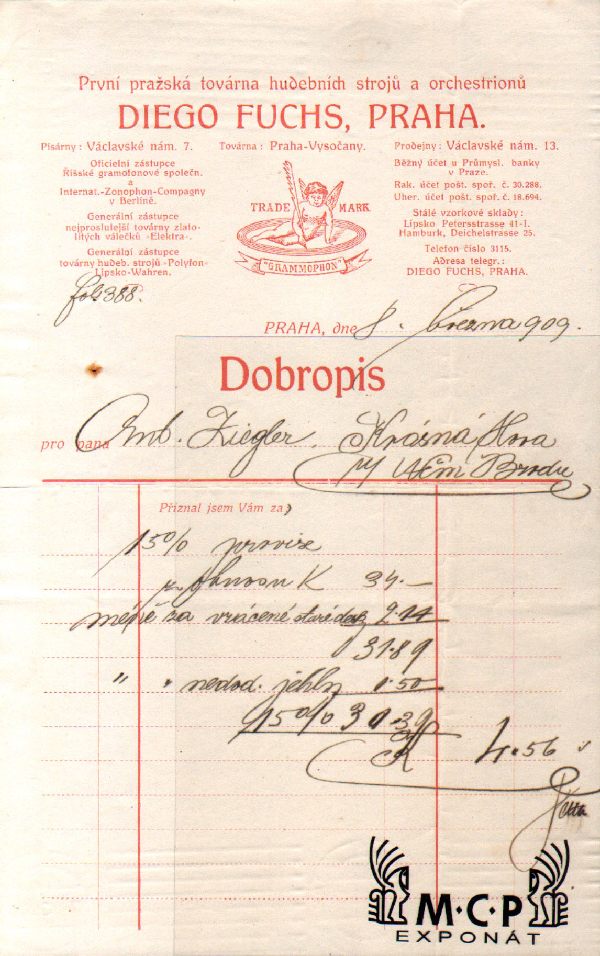 První pražská továrna hudebních strojů a orchestrionů
DIEGO FUCHS, PRAHA.
Písárny: Václavské nám. 7.
Oficielní zástupce
Říšské gramofonové společn.
a
Internat.-Zonophon-Compagny
v Berlíně.
Generální zástupce
nejproslulejší továrny zlato-
litých válečků »Elektra«.
Generální zástupce
továrny hudeb. strojů »Polyfon«
Lipsko-Wahren.
Továrna: Praha-Vysočany.
TRADE MARK
"GRAMMOPHON"
Prodejny: Václavské nám. 13.
Běžný účet u Průmysl. banky
v Praze.
Rak. účet pošt. spoř. č. 30.288.
Uher. účet pošt. spoř. č. 18.694.
Stálé vzorkové sklady:
Lipsko Petersstrasse 41-I.
Hamburk, Deichelstrasse 25.
Telefon číslo 3115.
Adresa telegr.:
DIEGO FUCHS, PRAHA.
fol 388.
PRAHA, dne 8. března 909.
Dobropis
pro pana Ant. Ziegler. Krásná Hora
Něm Brodu
Přiznal jsem Vám za
15% provise
obnosu K 34.—
méně za vrácené staré 2.11
31.89
" " nedod. jehly 1.50
15% 30.39
K 4.56
M·C·P
EXPONÁT